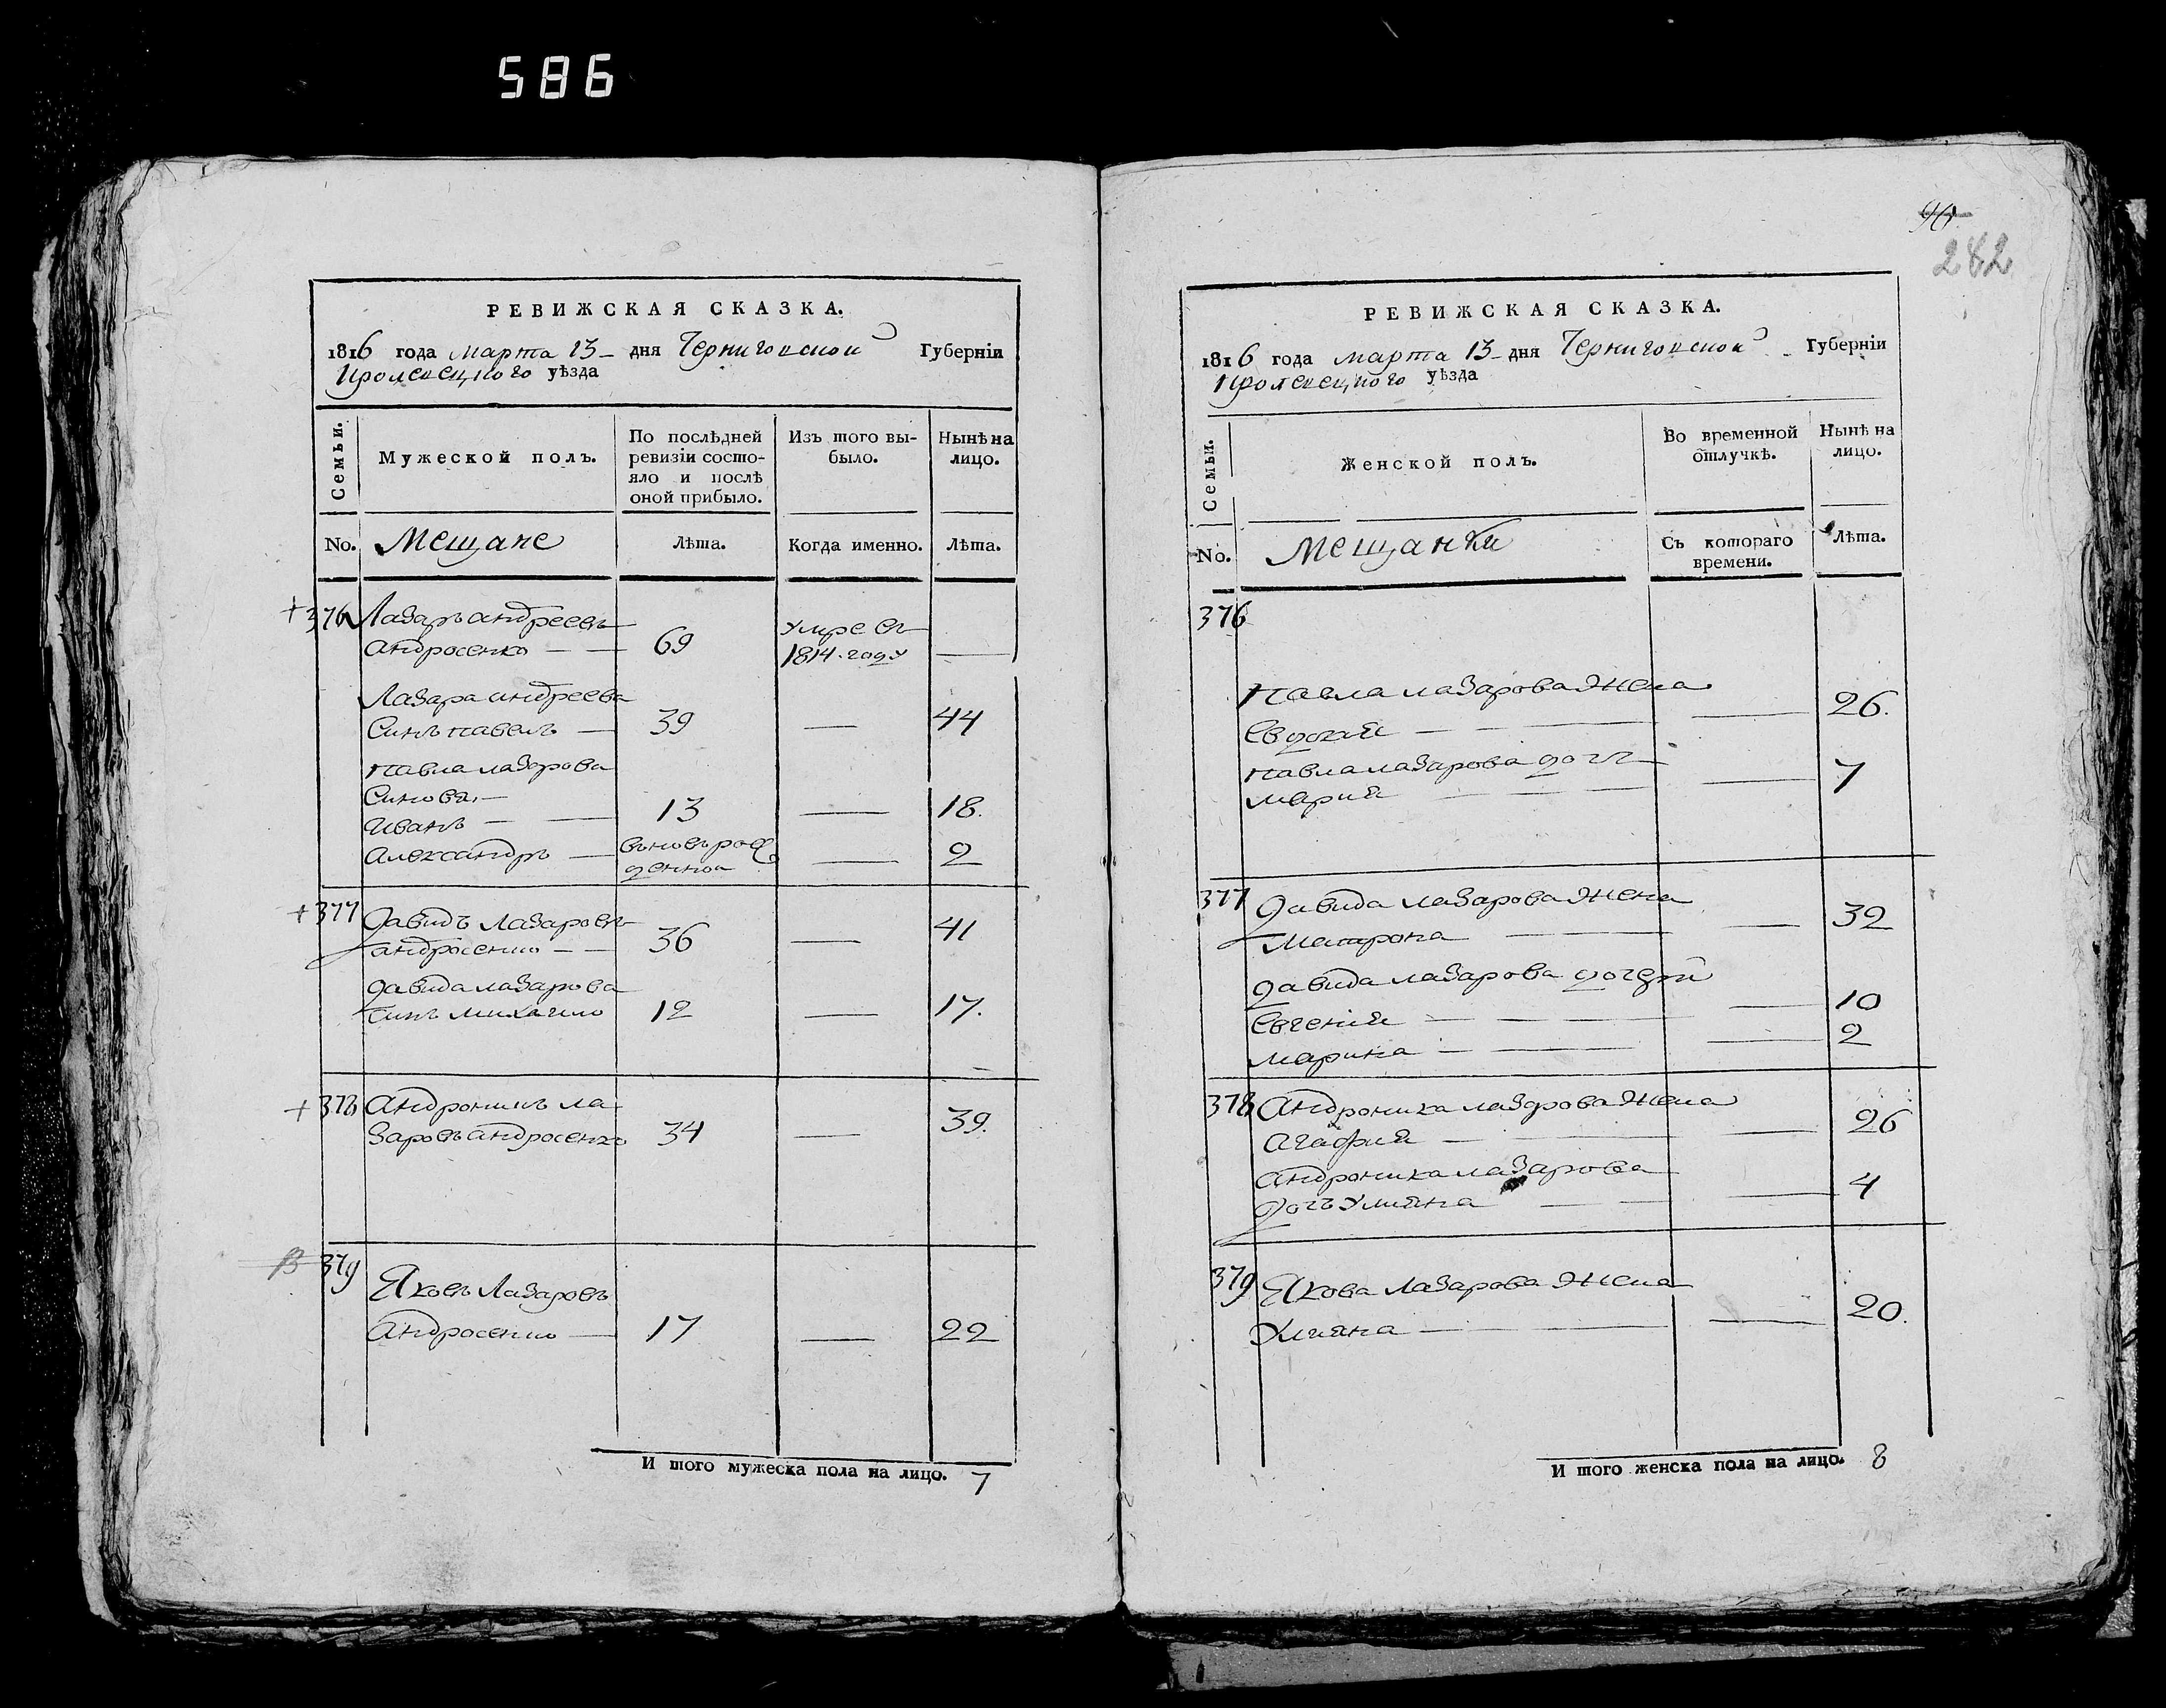 586
РЕВИЖСКАЯ СКАЗКА.
1816 года марта 13 - дня Черниговской Губерніи
Кролевецкого уѣзда
Семьи.
Мужеской полъ.
По послѣдней ревизіи состо-
яло и послѣ
оной прибыло.
Изъ того вы-
было.
Нынѣ на
лицо.
No. Мещане Лѣта. Когда именно. Лѣта.
+ 376 Лазаръ андреевъ
андросенко — — 69 умре въ
1814. году —
Лазара андреева
Синъ павелъ — 39 — 44
павла лазарова
Синови —
Иванъ — — 13 — 18.
Александръ — вновърож
денной — 2
+ 377 Давидъ Лазаровъ
андросенко — — 36 — 41
давида лазарова
Синъ михаило 12 — 17.
+ 378 Андроникъ ла
заровъ андросенко 34 — 39.
379 Яковъ Лазаровъ
Андросенко — 17 — 22
И того мужеска пола на лицо. 7
90
282
РЕВИЖСКАЯ СКАЗКА.
1816 года марта 13 - дня Черниговской Губерніи
Кролевецкого уѣзда
Семьи.
Женской полъ.
Во временной
отлучкѣ.
Нынѣ на
лицо.
No. Мещанки Съ котораго
времени. Лѣта.
376
Павла лазарова жена
Евдокия — — — 26.
павла лазарова дочь —
мария — — — 7
377 Давида лазарова жена
Матрона — — 32
давида лазарова дочери
Евгения — — — 10
марина — — — 2
378 Андроника лазарова жена
Агафия — — — 26
андроника лазарова
Дочъ улияна — — 4
379 Якова Лазарова жена
Улияна — — — 20.
И того женска пола на лицо. 8